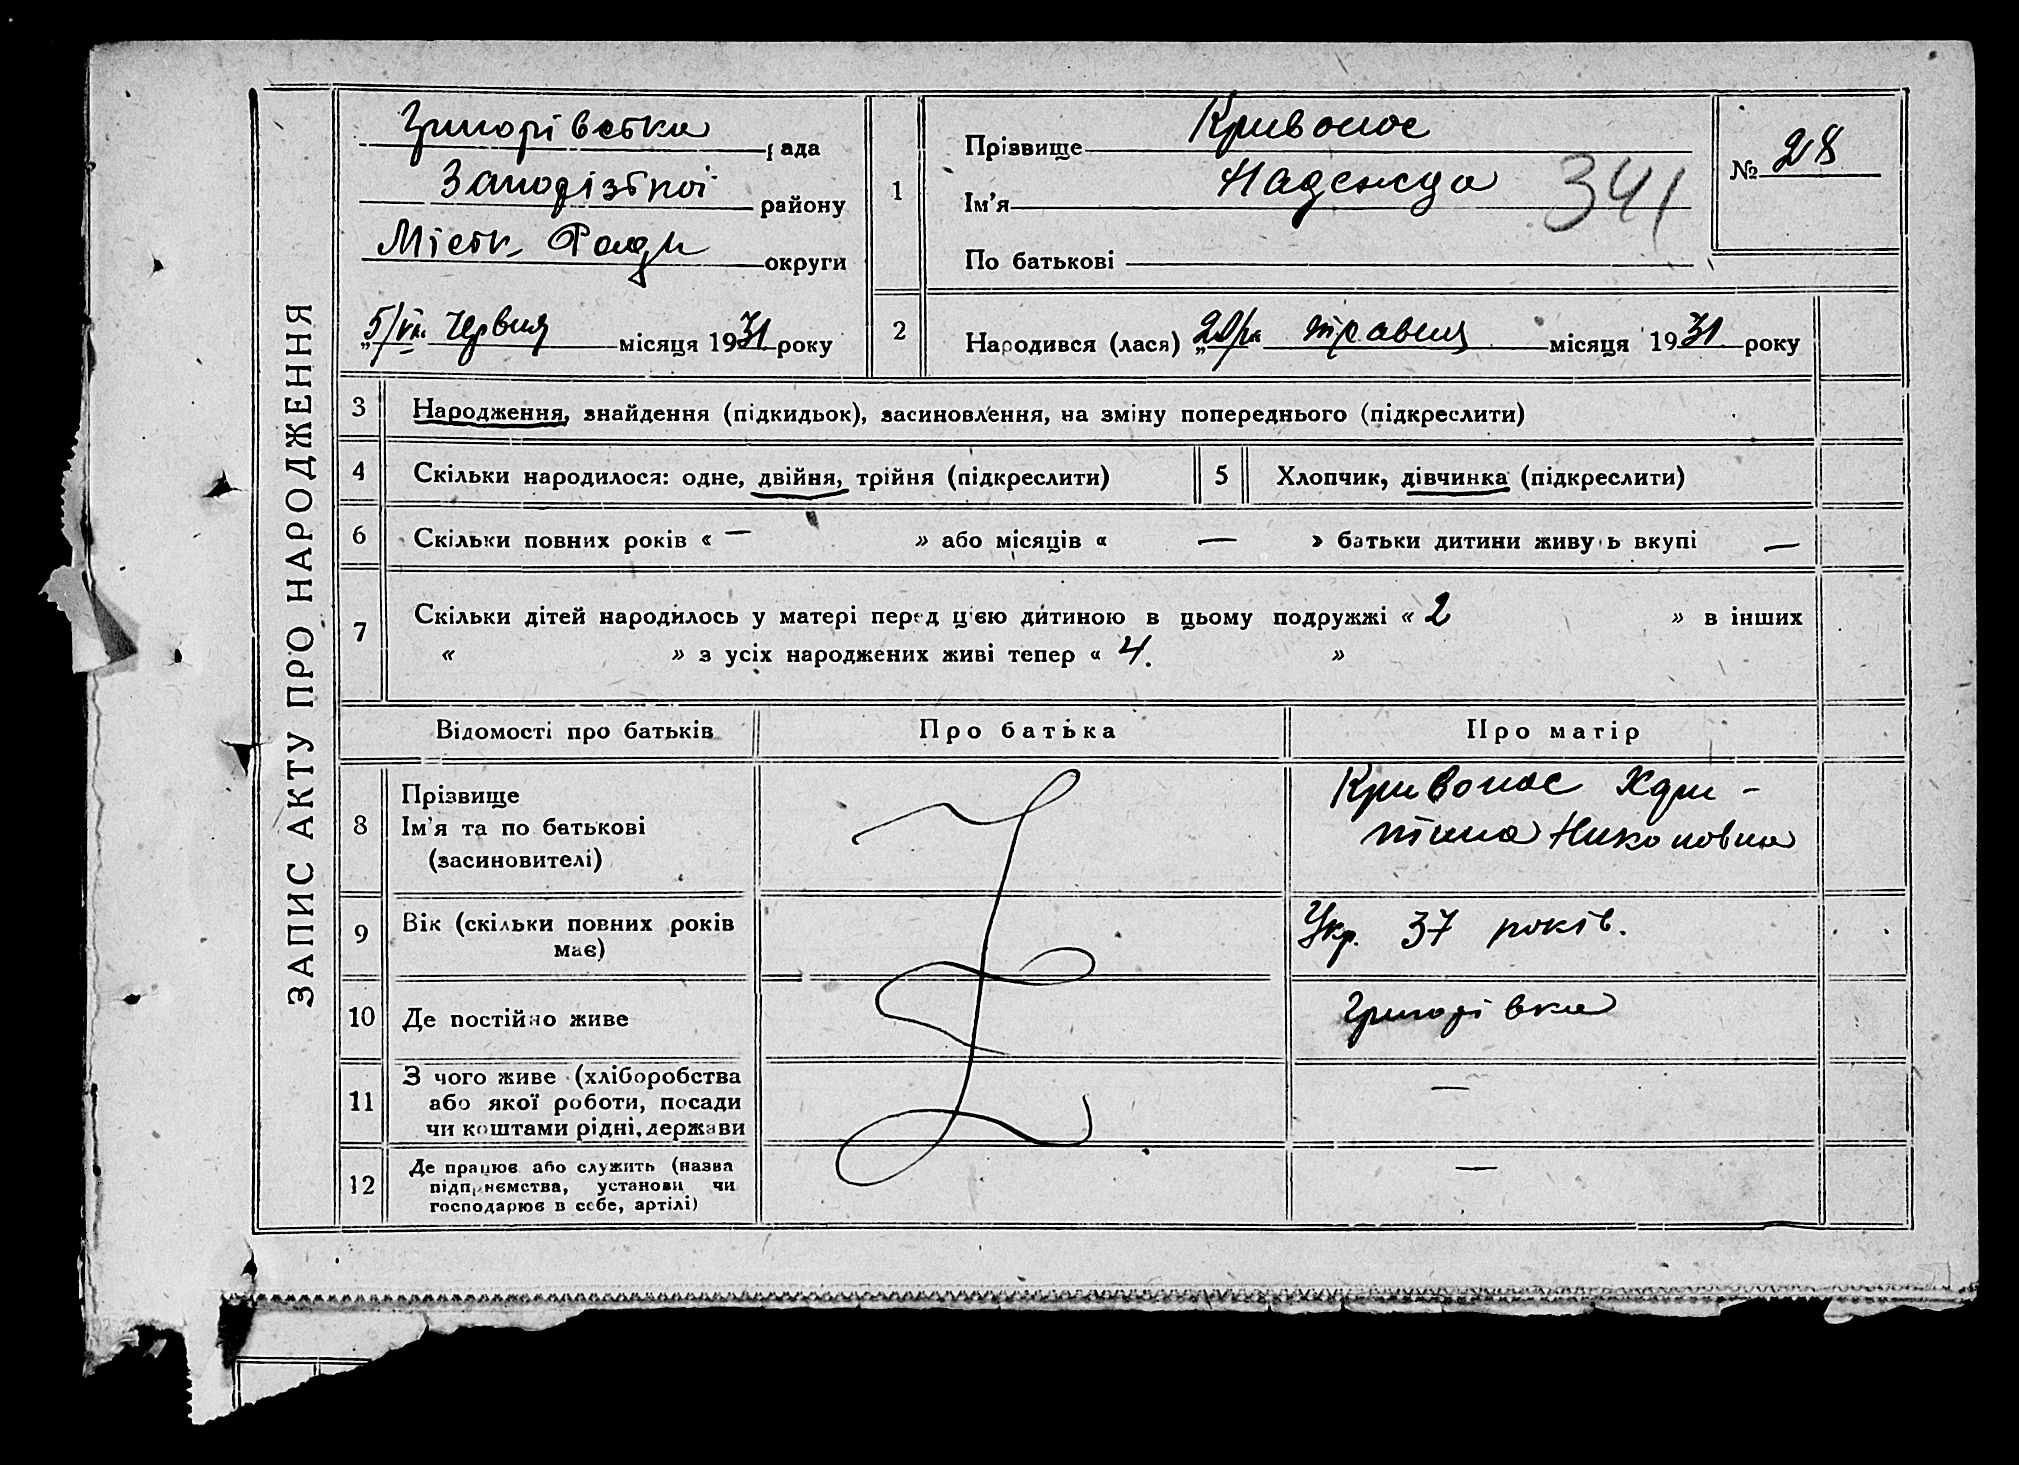 ЗАПИС АКТУ ПРО НАРОДЖЕННЯ
Григорівська рада
Запорізької району
Міськ. Ради округи
„5/VI“ червня місяця 1931 року
1
Прізвище Кривонос
Ім'я Надежда 341
По батькові
№ 28
2
Народився (лася) „20/га травня місяця 1931 року
3 Народження, знайдення (підкидьок), засиновлення, на зміну попереднього (підкреслити)
4 Скільки народилося: одне, двійня, трійня (підкреслити) 5 Хлопчик, дівчинка (підкреслити)
6 Скільки повних років « — » або місяців « — » батьки дитини живуть вкупі —
7 Скільки дітей народилось у матері перед цією дитиною в цьому подружжі « 2 » в інших
« » з усіх народжених живі тепер « 4. »
Відомості про батьків Про батька Про матір
8 Прізвище
Ім'я та по батькові
(засиновителі)
Кривонос
9 Вік (скільки повних років
має)
Укр. 37 років.
10 Де постійно живе Григорівка
11 З чого живе (хліборобства
або якої роботи, посади
чи коштами рідні, держави
—
12 Де працює або служить (назва
підприємства, установи чи
господарює в себе, артілі)
—